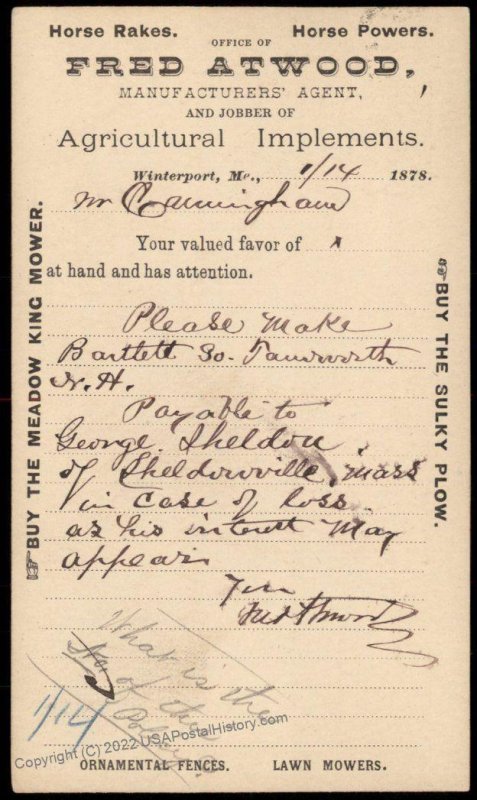 Horse Rakes. Horse Powers.
OFFICE OF
FRED ATWOOD,
MANUFACTURERS' AGENT,
AND JOBBER OF
Agricultural Implements.
Winterport, Me., 1/14 1878.
Mr Cunningham
Your valued favor of
at hand and has attention.
Please Make
Bartlett So. Tamworth
N. H.
Payable to
George Sheldon
of Sheldonville, Mass
in case of loss
as his interest May
appear
Fred Atwood
What is the
No. of this
Policy
1/14
BUY THE MEADOW KING MOWER.
BUY THE SULKY PLOW.
ORNAMENTAL FENCES. LAWN MOWERS.
Copyright (C) 2022 USAPostalHistory.com